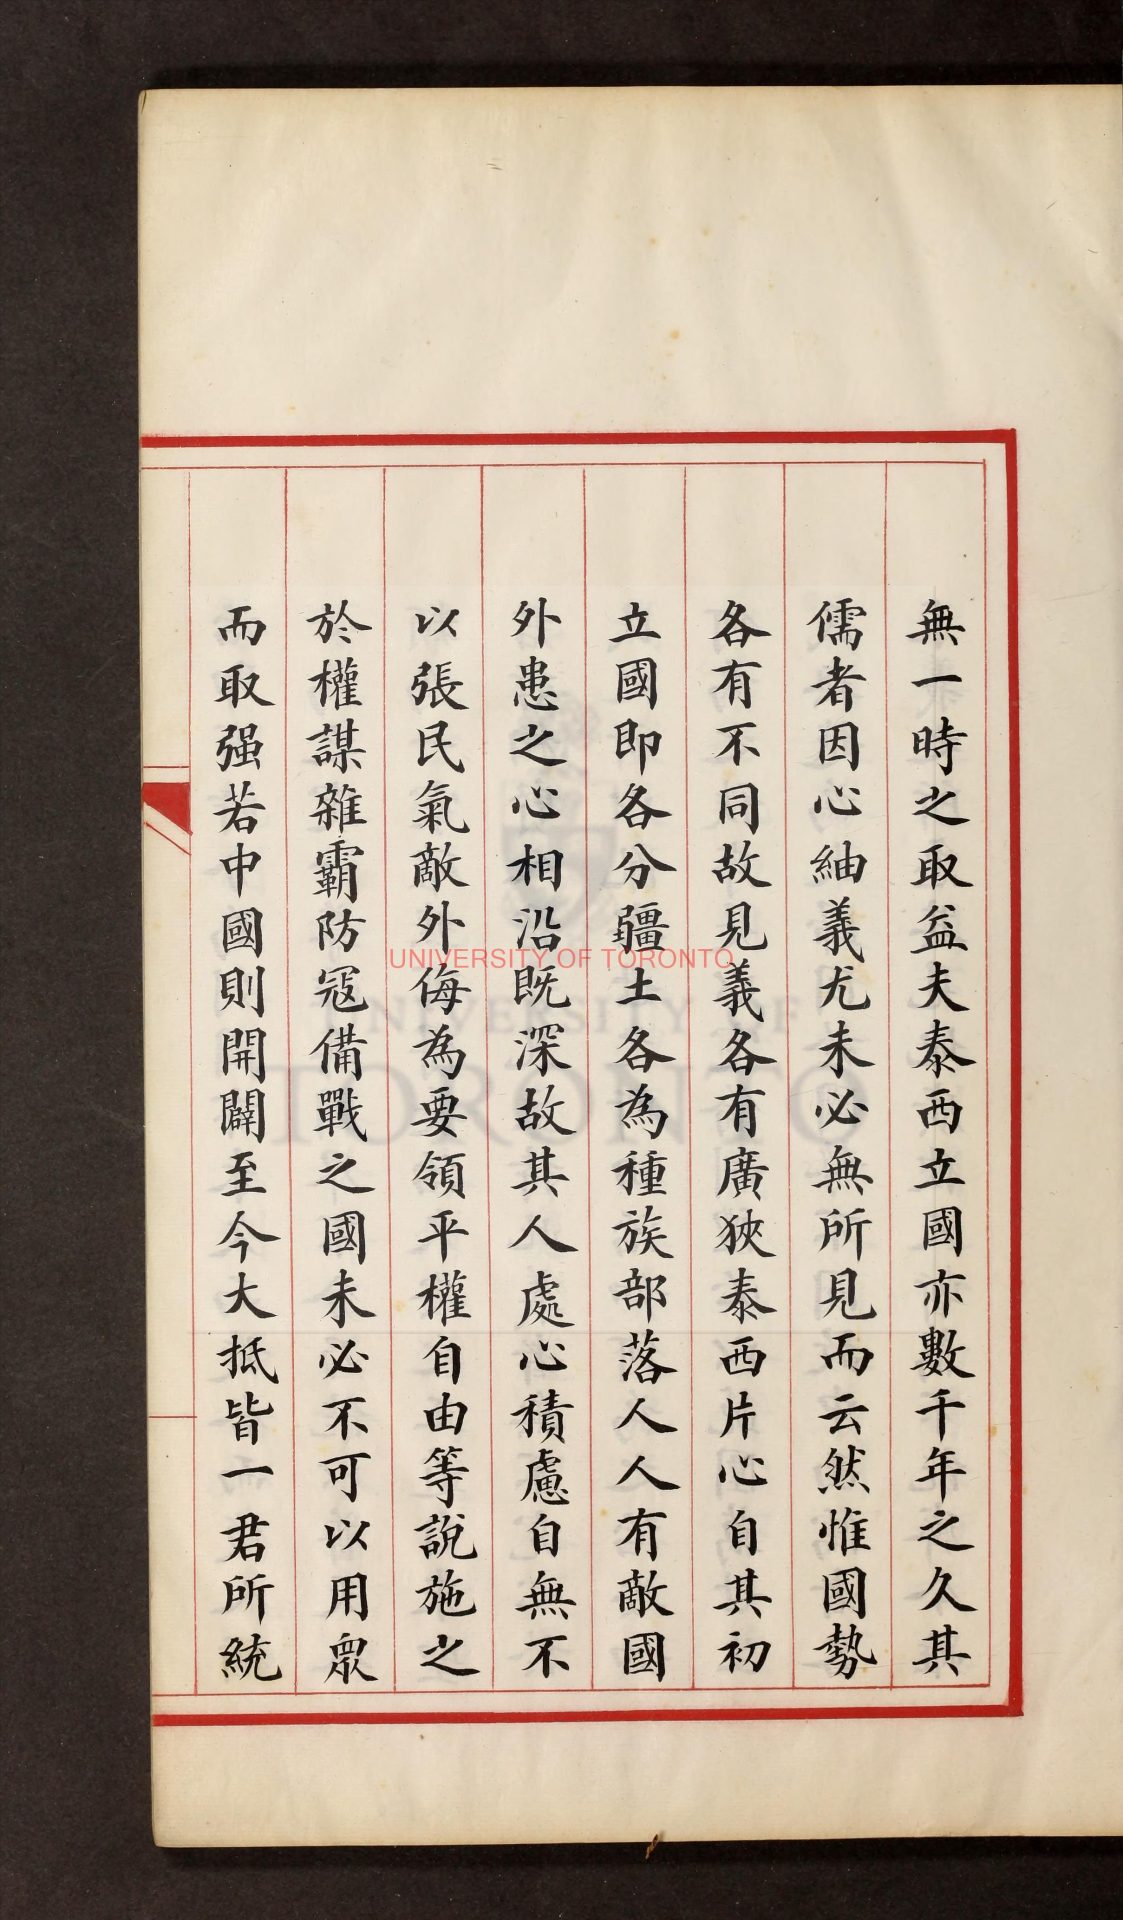 無一時之取益夫泰西立國亦數千年之久其
儒者因心紬義尤未必無所見而云然惟國勢
各有不同故見義各有廣狹泰西片心自其初
立國即各分疆土各為種族部落人人有敵國
外患之心相沿既深故其人處心積慮自無不
以張民氣敵外侮為要領平權自由等說施之
於權謀雜霸防寇備戰之國未必不可以用眾
而取强若中國則開闢至今大抵皆一君所統
UNIVERSITY OF TORONTO
UNIVERSITY OF
TORONTO